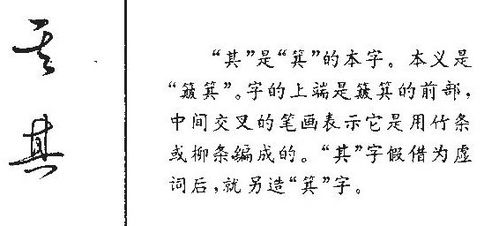 其
其
“其”是“箕”的本字。本义是
“簸箕”。字的上端是簸箕的前部，
中间交叉的笔画表示它是用竹条
或柳条编成的。“其”字假借为虚
词后，就另造“箕”字。